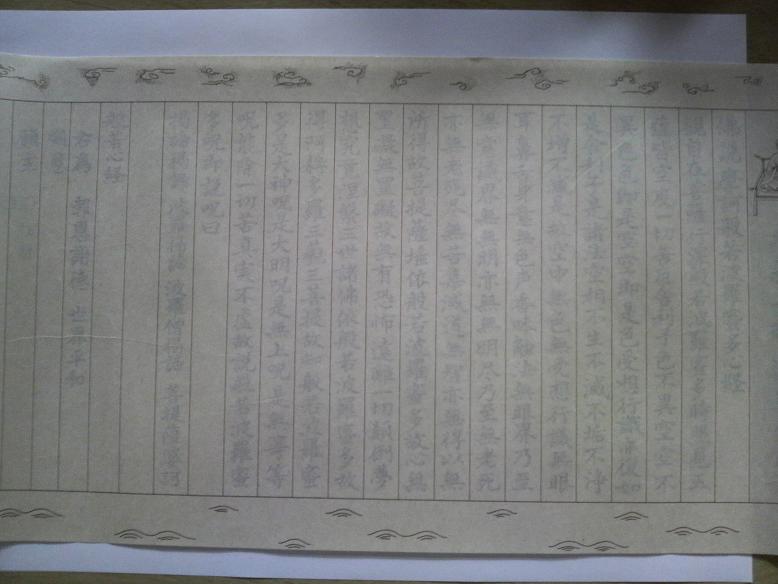 佛説摩訶般若波羅蜜多心経
観自在菩薩行深般若波羅蜜多時照見五
蘊皆空度一切苦厄舎利子色不異空空不
異色色即是空空即是色受想行識亦復如
是舎利子是諸法空相不生不滅不垢不浄
不増不減是故空中無色無受想行識無眼
耳鼻舌身意無色声香味触法無眼界乃至
無意識界無無明亦無無明尽乃至無老死
亦無老死尽無苦集滅道無智亦無得以無
所得故菩提薩埵依般若波羅蜜多故心無
罣礙無罣礙故無有恐怖遠離一切顛倒夢
想究竟涅槃三世諸佛依般若波羅蜜多故
得阿耨多羅三藐三菩提故知般若波羅蜜
多是大神呪是大明呪是無上呪是無等等
呪能除一切苦真実不虚故説般若波羅蜜
多呪即説呪曰
羯諦羯諦 波羅羯諦 波羅僧羯諦 菩提薩婆訶
般若心経
右為 報恩謝徳 世界平和
願主